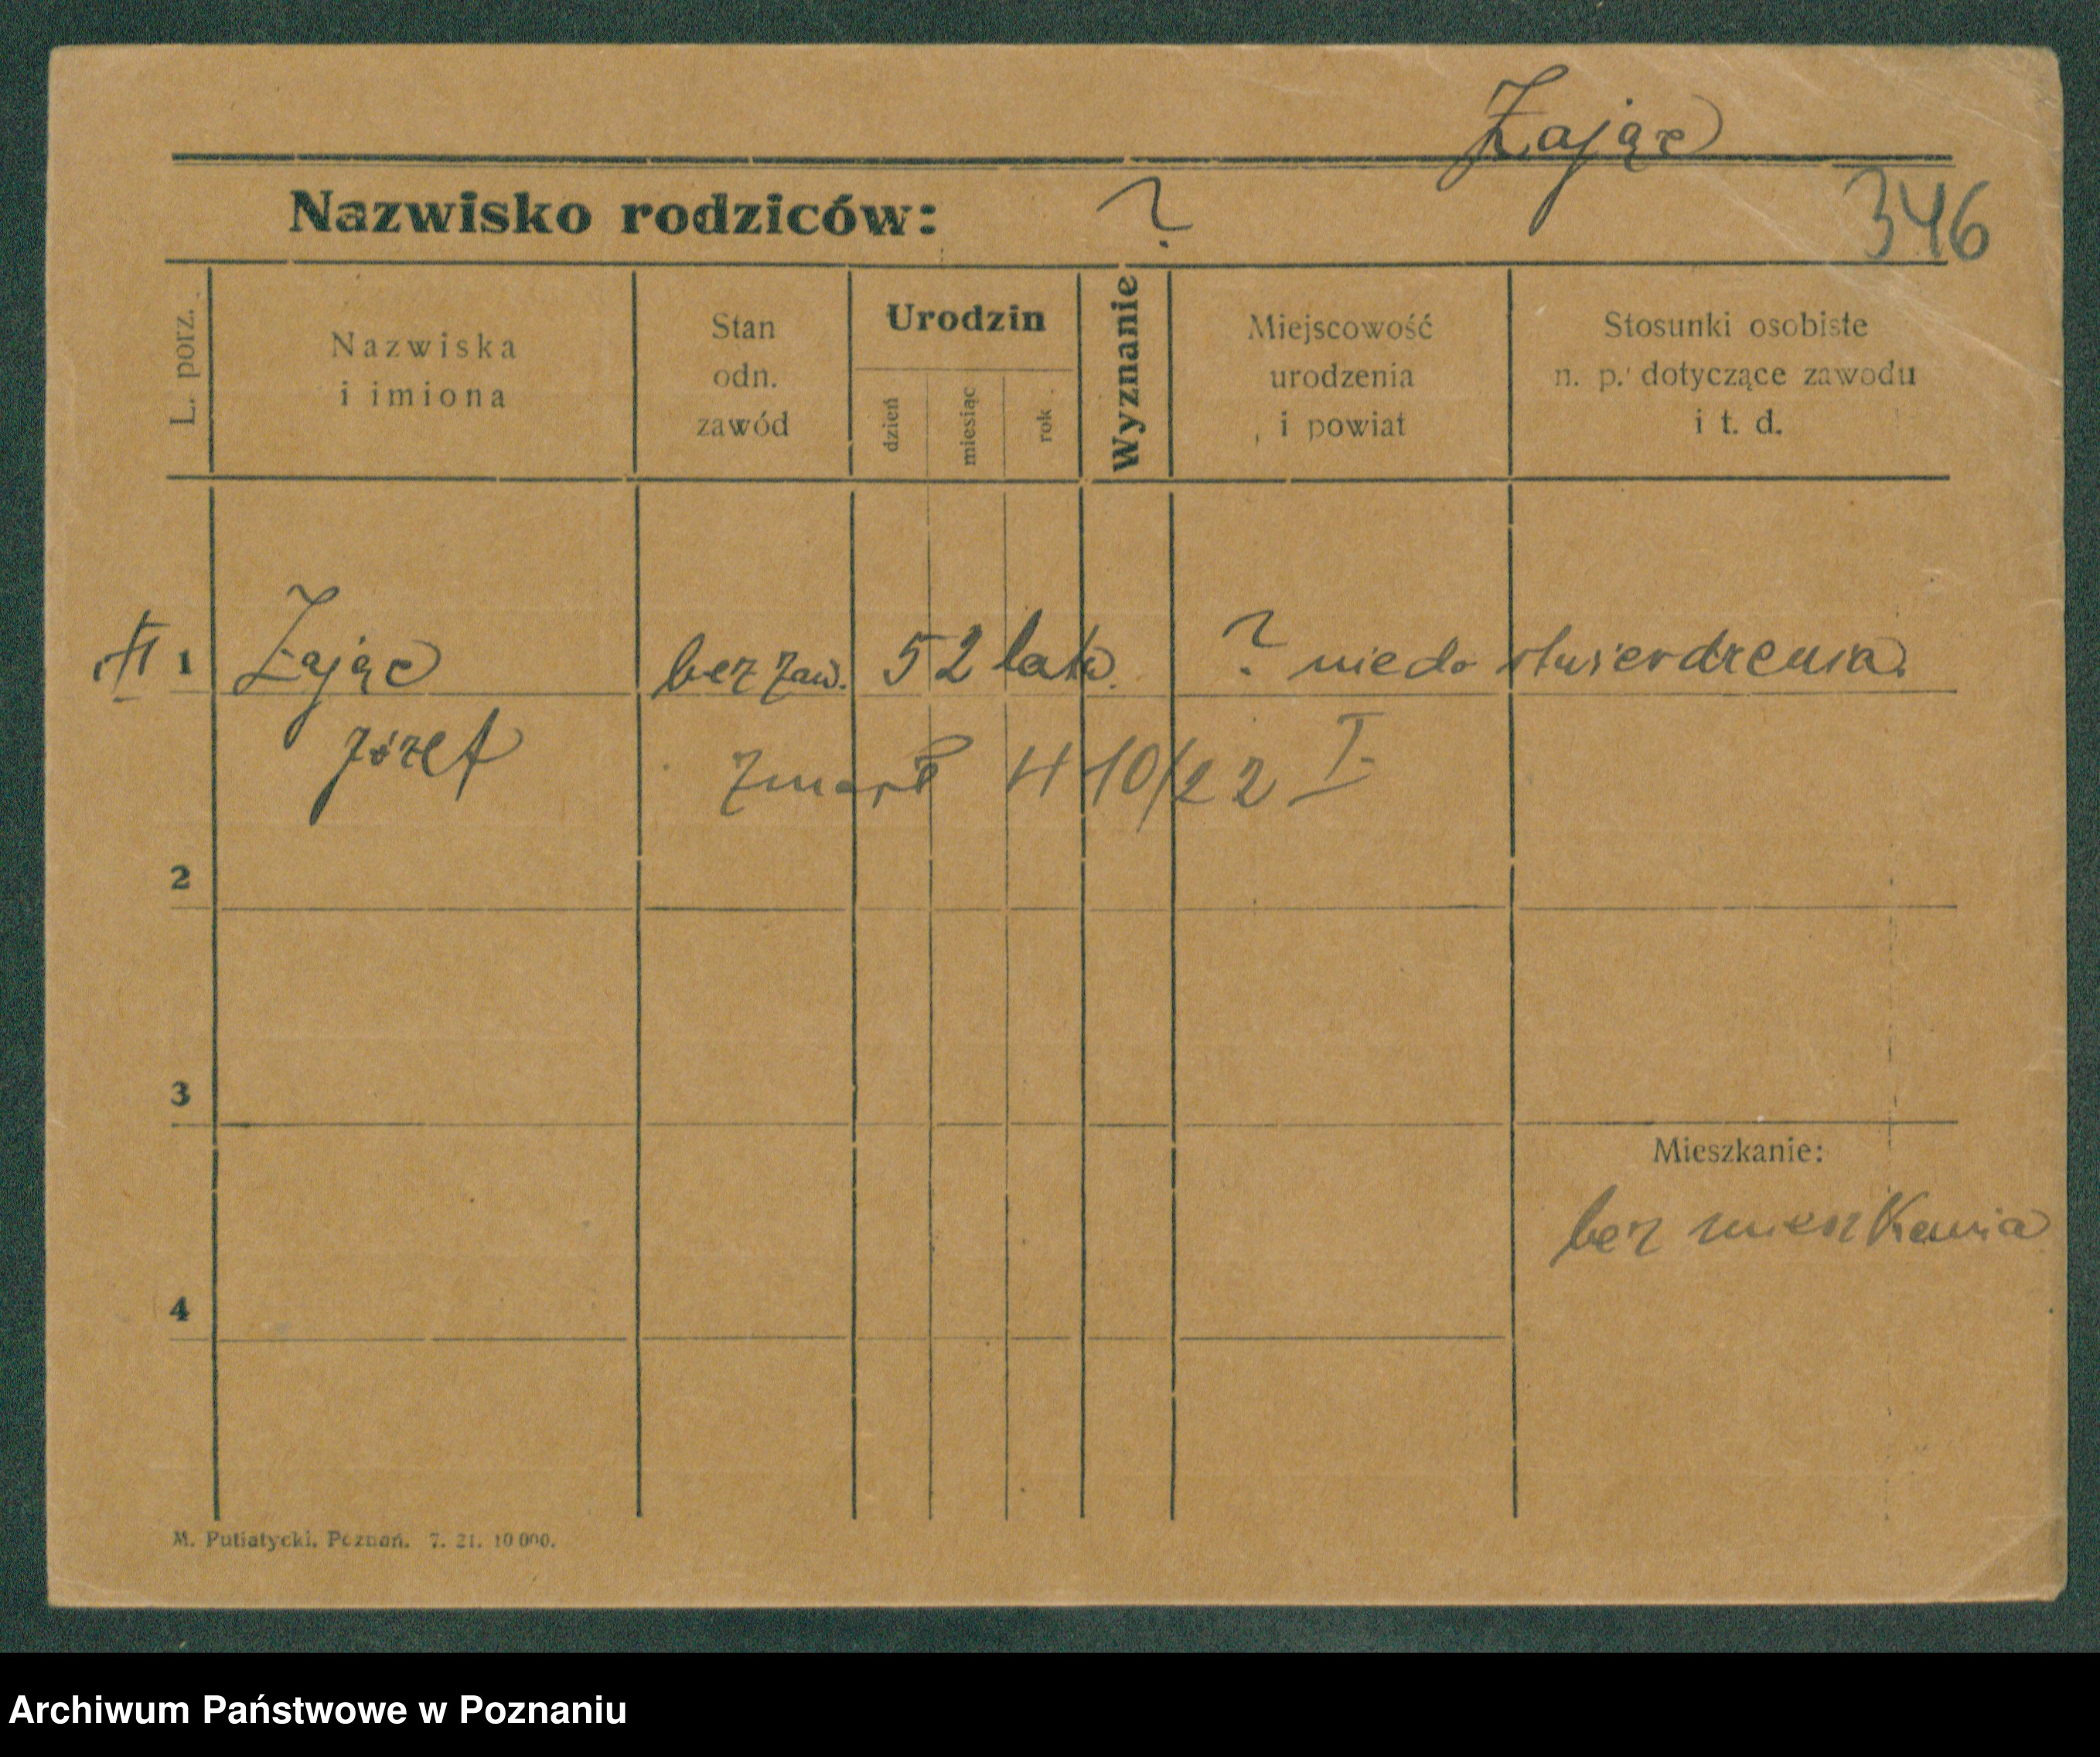 Zając
Nazwisko rodziców: ?
346
L. porz.
Nazwiska
i imiona
Stan
odn.
zawód
Urodzin
dzień
miesiąc
rok
Wyznanie
Miejscowość
urodzenia
i powiat
Stosunki osobiste
n. p. dotyczące zawodu
i t. d.
1 Zając bez zaw. 52 lata ? niedo stwierdzenia.
Józef
zmarł 4 10/22 I.
2
3
Mieszkanie:
bez mieszkania
4
M. Putiatycki. Poznań. 7. 21. 10 000.
Archiwum Państwowe w Poznaniu